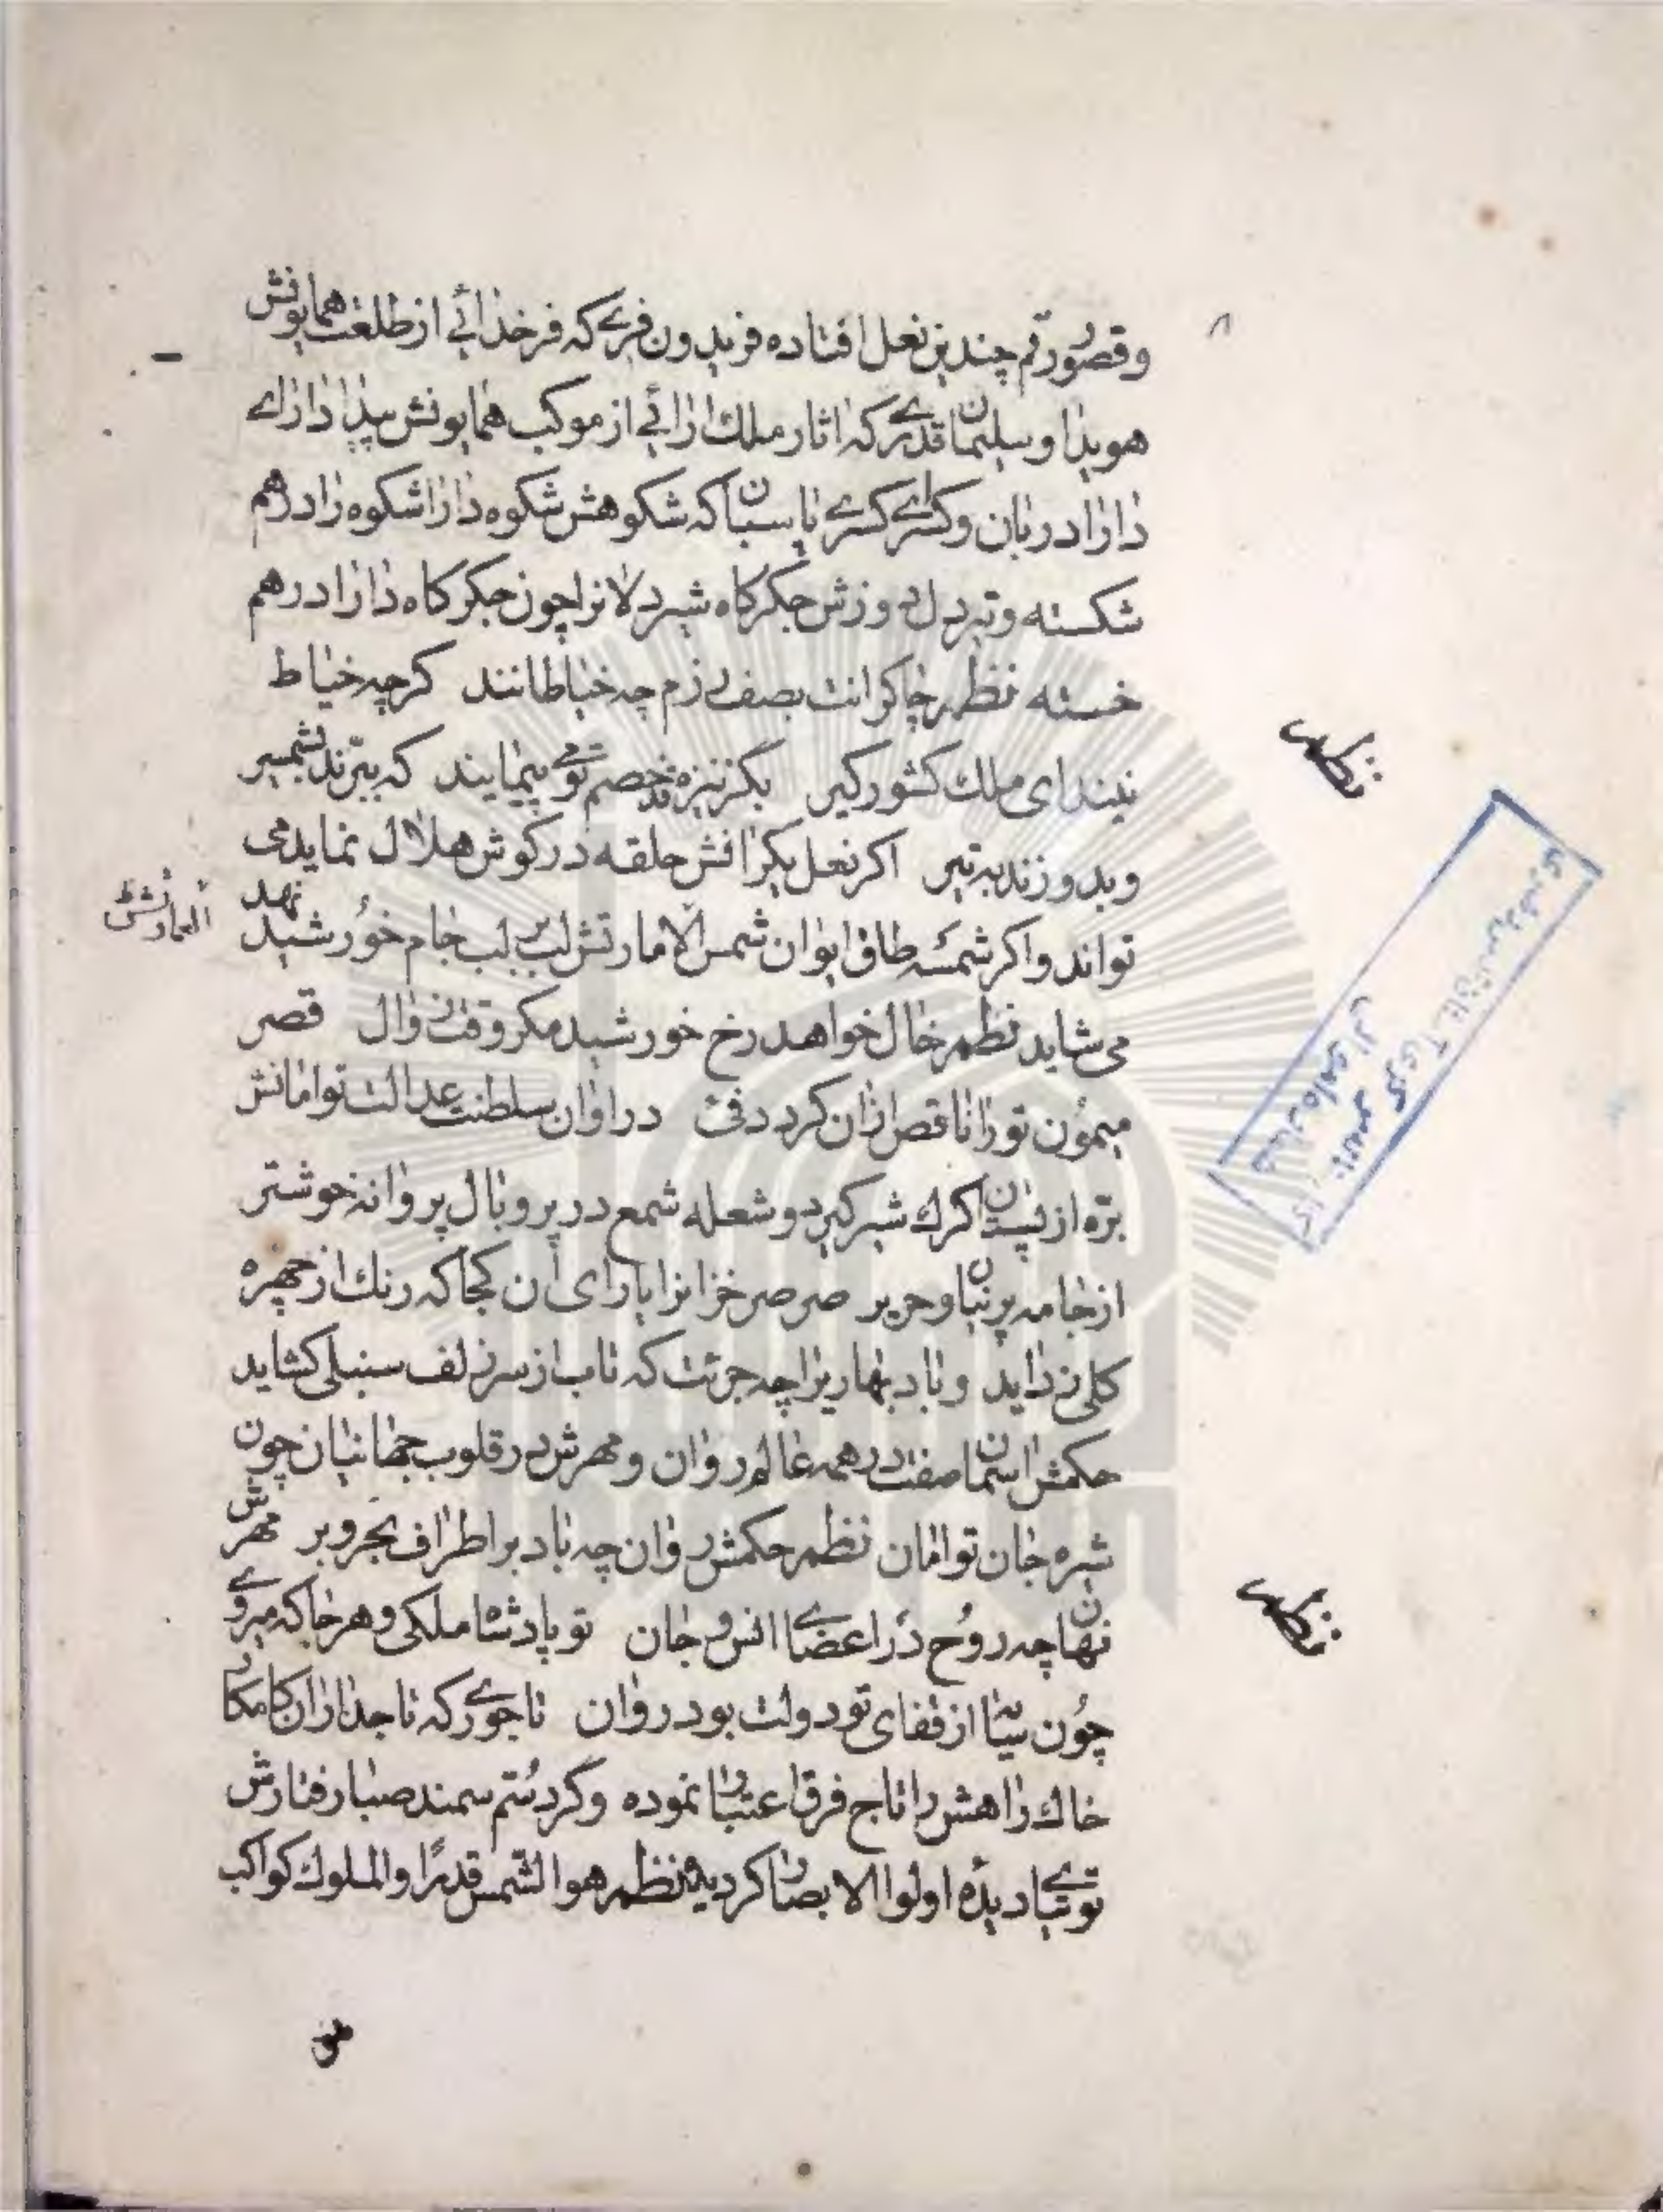 و قصور رقم چندین نعل افتاده فریدون فریکه فر خدائی از طلعت همایونش
هویدا و سلیمان قدریکه اثار ملک ارائی از موکب همایونش پیدا دارای
دارا دربان و کسرای کسری پاسبان که شکوهش شکوه دارا شکوه را درهم
شکسته و تیر دل دوزش جکرکاه شیردلانرا چون جکرکاه دارا درهم
خسته نظم چاکرانت بصف رزم چه خیاطانند کرچه خیاط
نیند ای ملک کشورکیر بگز نیزه قد خصم تو می پیمایند که ببرند بشمشیر
و بدوزند به تیر اکر نعل یکرانش حلقه در کوش هلال نماید می
تواند و اکر شمسه طاق ایوان شمس الامارتش لب بر لب جام خورشید نهد
می شاید نظم خال خواهد رخ خورشید مکر وقت زوال قصر
میمون تو را ناقص ازان کرد دقت در اوان سلطنت عدالت توامانش
بره از پستان کرک شیر کیرد و شعله شمع در پر و بال پروانه خوشتر
از جامه پرنیان و حریر صرصر خزانرا یارای ان کجا که رنک از چهره
کلی زداید و باد بهاریرا چه جرئت که تاب از سر زلف سنبلی کشاید
حکمش اسمان صفت در همه عالم روان و مهرش در قلوب جهانیان چون
شیره جان توامان نظم حکمش روان چه باد بر اطراف بحر و بر مهرش
نهان چه روح در اعضای انس و جان تو پادشاه ملکی و هرجا که میروی
چون سایه از قفای تو دولت بود روان تاجوریکه تاجداران کامکار
خاک راهش را تاج فرق اعتبار نموده و کرد سم سمند صبا رفتارش
توتیای دیده اولوا الابصار کردیده نظم هو الشمس قدرًا و الملوک کواکب
نظم
نظم